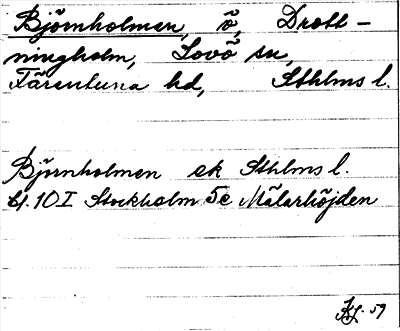 Björnholmen, ö, Drott-
ningholm, Lovö sn,
Färentuna hd, Sthlms l.
Björnholmen ek Sthlms l.
bl. 10 I Stockholm 5c Mälarhöjden
59